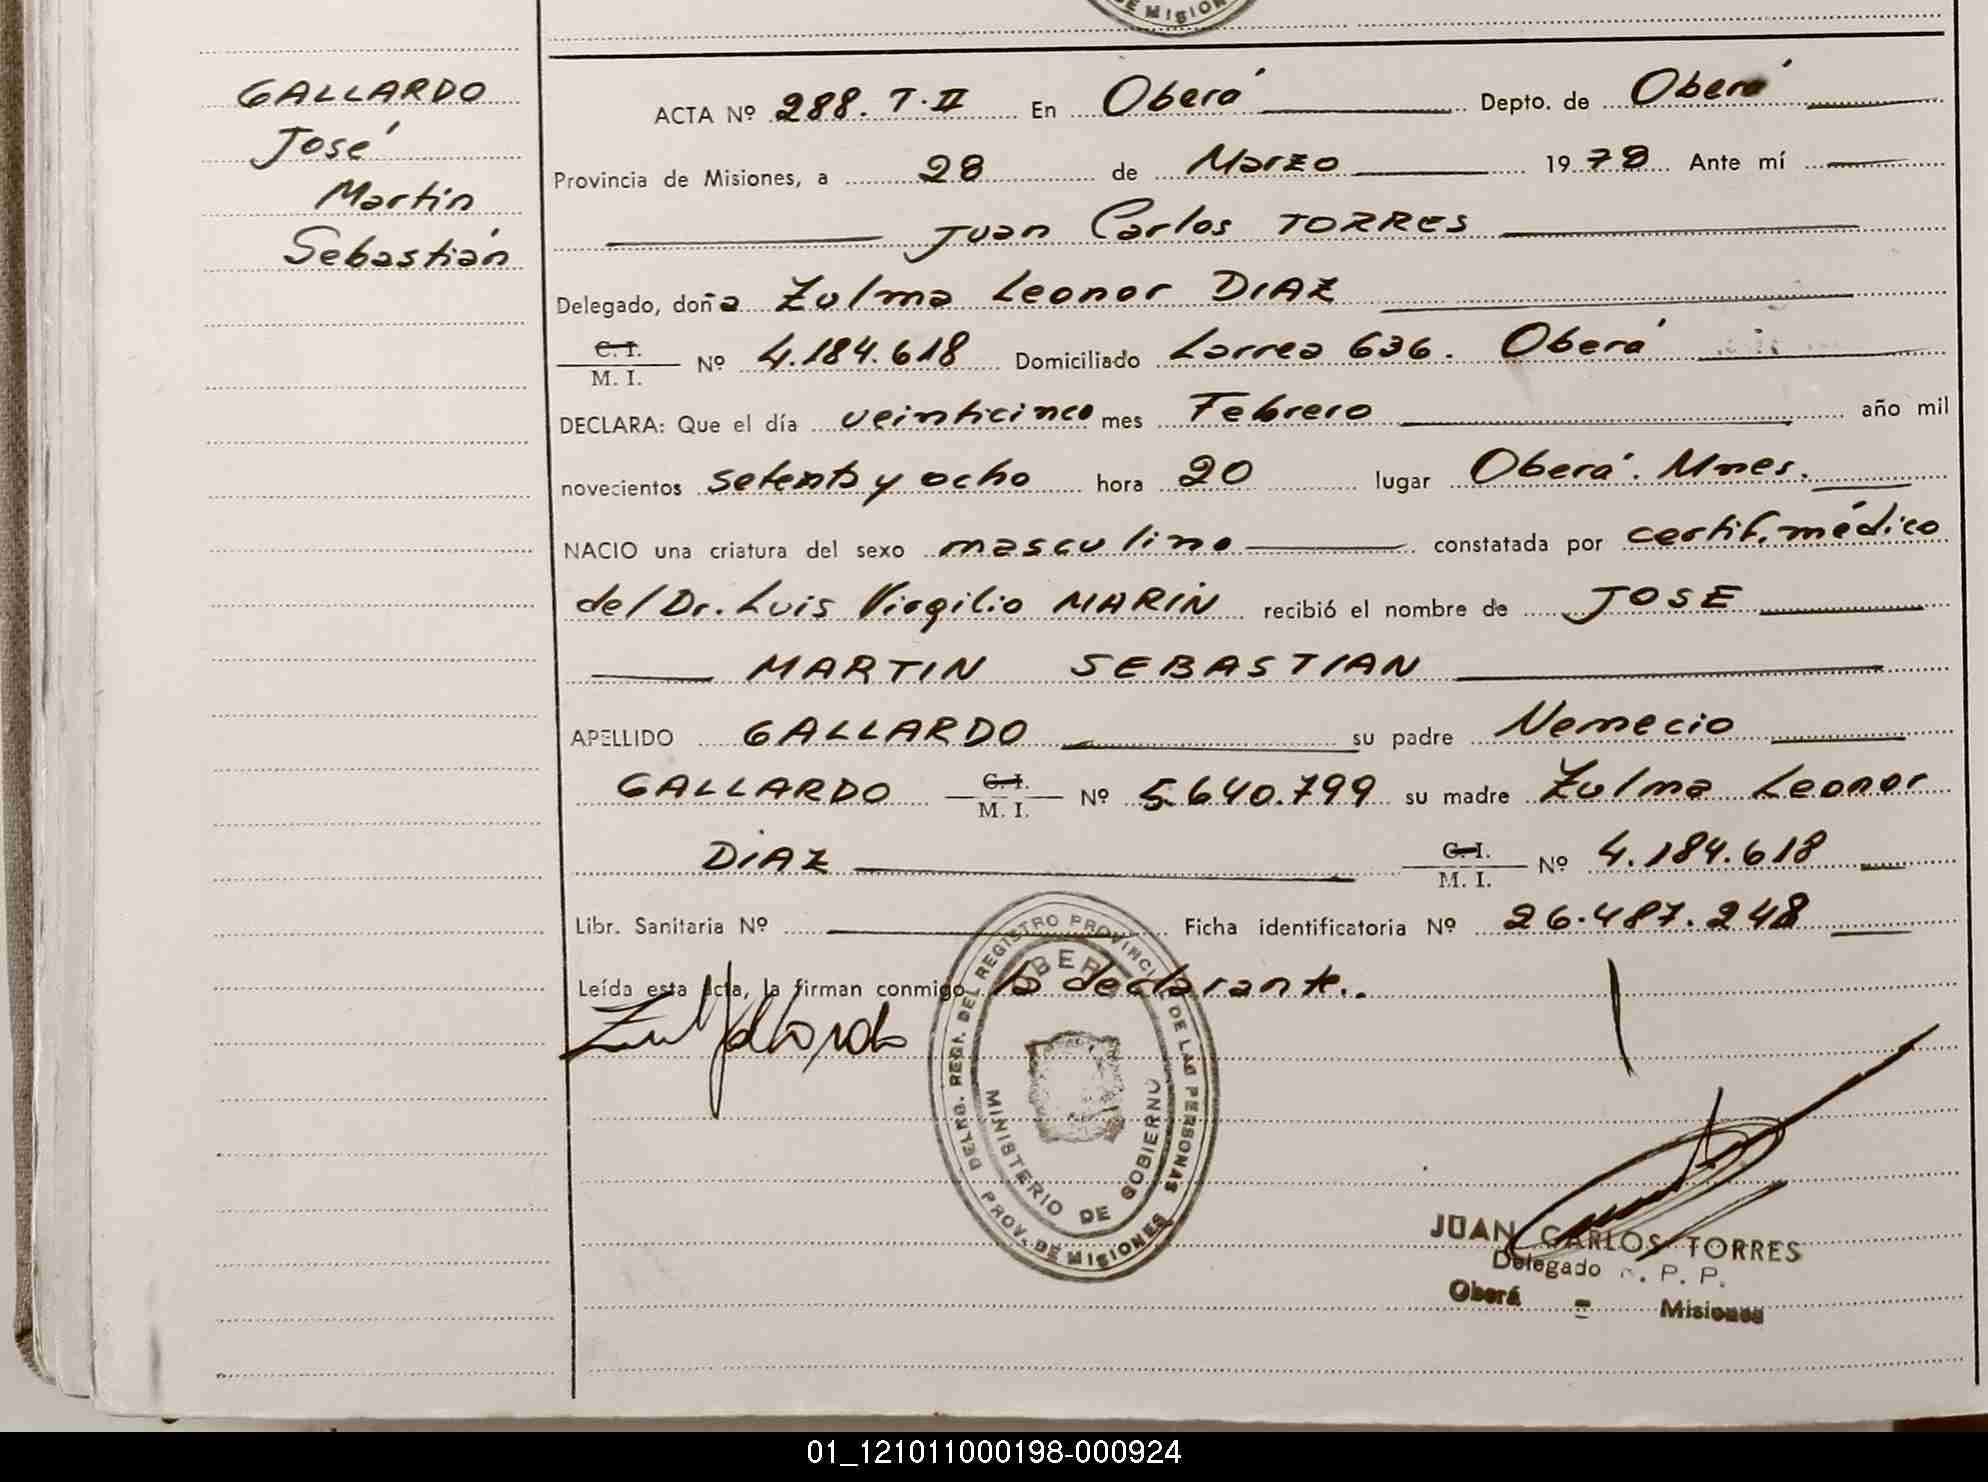 DE MISION
GALLARDO
José
Martin
Sebastián
ACTA Nº 288. T. II En Oberá Depto. de Oberá
Provincia de Misiones, a 28 de Marzo 1978 Ante mí
Juan Carlos TORRES
Delegado, doña Zulma Leonor DIAZ
C. I.
M. I. Nº 4.184.618 Domiciliado Larrea 636. Oberá
DECLARA: Que el día veinticinco mes Febrero año mil
novecientos setenta y ocho hora 20 lugar Oberá. Mnes.
NACIO una criatura del sexo masculino constatada por certif. médico
del Dr. Luis Virgilio MARIN recibió el nombre de JOSE
MARTIN SEBASTIAN
APELLIDO GALLARDO su padre Nemecio
GALLARDO C. I. M. I. Nº 5.640.799 su madre Zulma Leonor
DIAZ C. I. M. I. Nº 4.184.618
Libr. Sanitaria Nº Ficha identificatoria Nº 26.487.248
Leída esta Acta, la firman conmigo la declarante.
Zul Gallardo
REGT. DEL REGISTRO PROVINCIAL DE LAS PERSONAS
OBERA
MINISTERIO DE GOBIERNO
PROV. DE MISIONES
JUAN CARLOS TORRES
Delegado R. P. P.
Oberá - Misiones
01_121011000198-000924